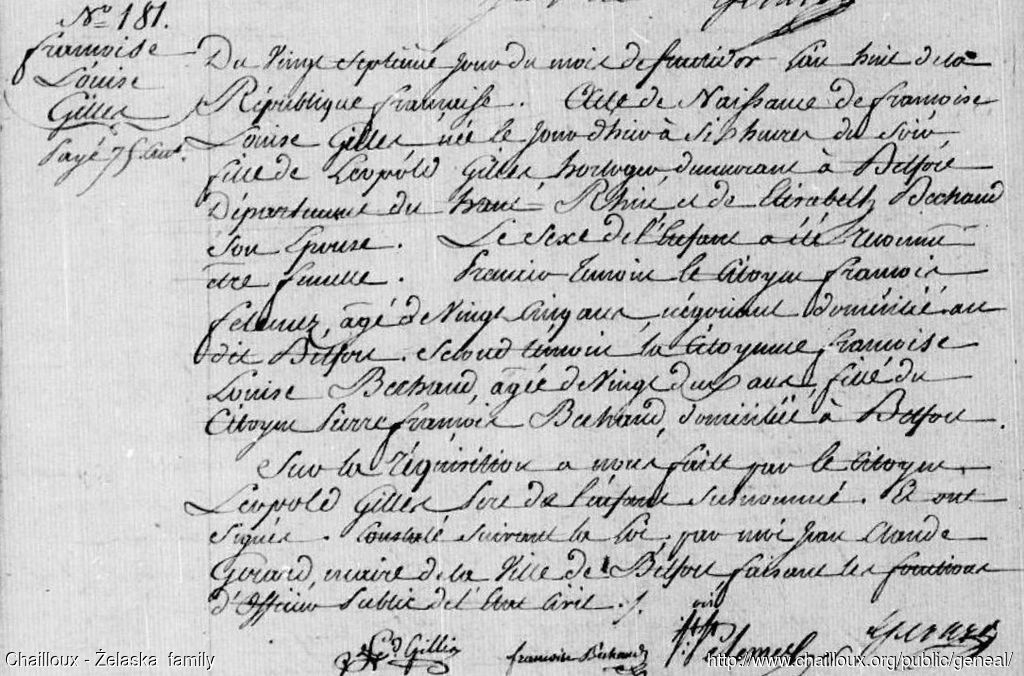 N.º 181.
françoise
Louise
Gilles
Payé 75 Cent.
Du Vingt Septieme Jour du mois de fructidor L'an huit de la
République française. Acte de Naissance de françoise
Louise Gilles née le Jourd'hui à Six heures du Soir
fille de Léopold Gilles horloger demeurant à Belfort
Département du haut Rhin et de Elisabeth Bechaud
Son Epouse. Le Sexe de l'Enfant a été reconnu
être femelle. Premier temoin le Citoyen françois
âgé de Vingt Cinq ans, négociant domicilié au
dit Belfort. Second témoin la Citoyenne françoise
Louise Bechaud, agée de Vingt deux ans, fille du
Citoyen Pierre françois Bechaud, domicilié à Belfort.
Sur la réquisition a nous faitt par le Citoyen
Léopold Gilles Pere de l'enfant susnommé. Et ont
Signés. Constaté suivant la Loi, par moi Jean Claude
Gerard, maire de la Ville de Belfort faisant les fonctions
d'Officier Public de l'Etat Civil.
Ld. Gillis
françoise Bechaud
Gerard
Chailloux - Żelaska family
http://www.chailloux.org/public/geneal/